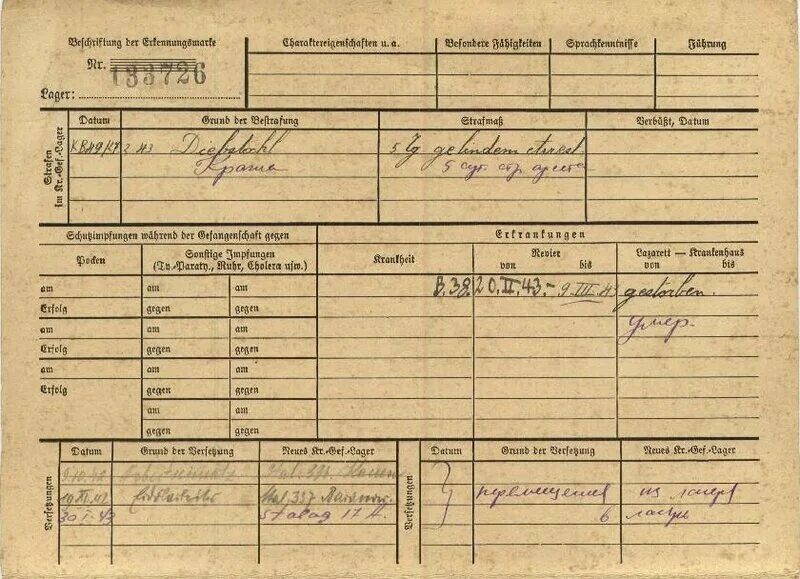 Beschriftung der Erkennungsmarke
Nr. 133726
Lager:
Charaktereigenschaften u. a.
Besondere Fähigkeiten
Sprachkenntnisse
Führung
Strafen im Kr.-Gef.-Lager
Datum
Grund der Bestrafung
Strafmaß
Verbüßt, Datum
2 43
Diebstahl
5 Tg gelindem Arrest
Кража
5 сут. стр. ареста
Schutzimpfungen während der Gefangenschaft gegen
Erkrankungen
Pocken
Sonstige Impfungen
(Ty.-Paraty., Ruhr, Cholera usw.)
Krankheit
Revier
von bis
Lazarett — Krankenhaus
von bis
am am am
B.38. 20.II.43.- 9.III.43 gestorben.
Erfolg gegen gegen
умер.
am am am
Erfolg gegen gegen
am am am
Erfolg gegen gegen
am am
gegen gegen
Versetzungen
Datum
Grund der Versetzung
Neues Kr.-Gef.-Lager
Versetzungen
Datum
Grund der Versetzung
Neues Kr.-Gef.-Lager
перемещения из лагеря
в лагерь
30 I. 43
Stalag 17 A.